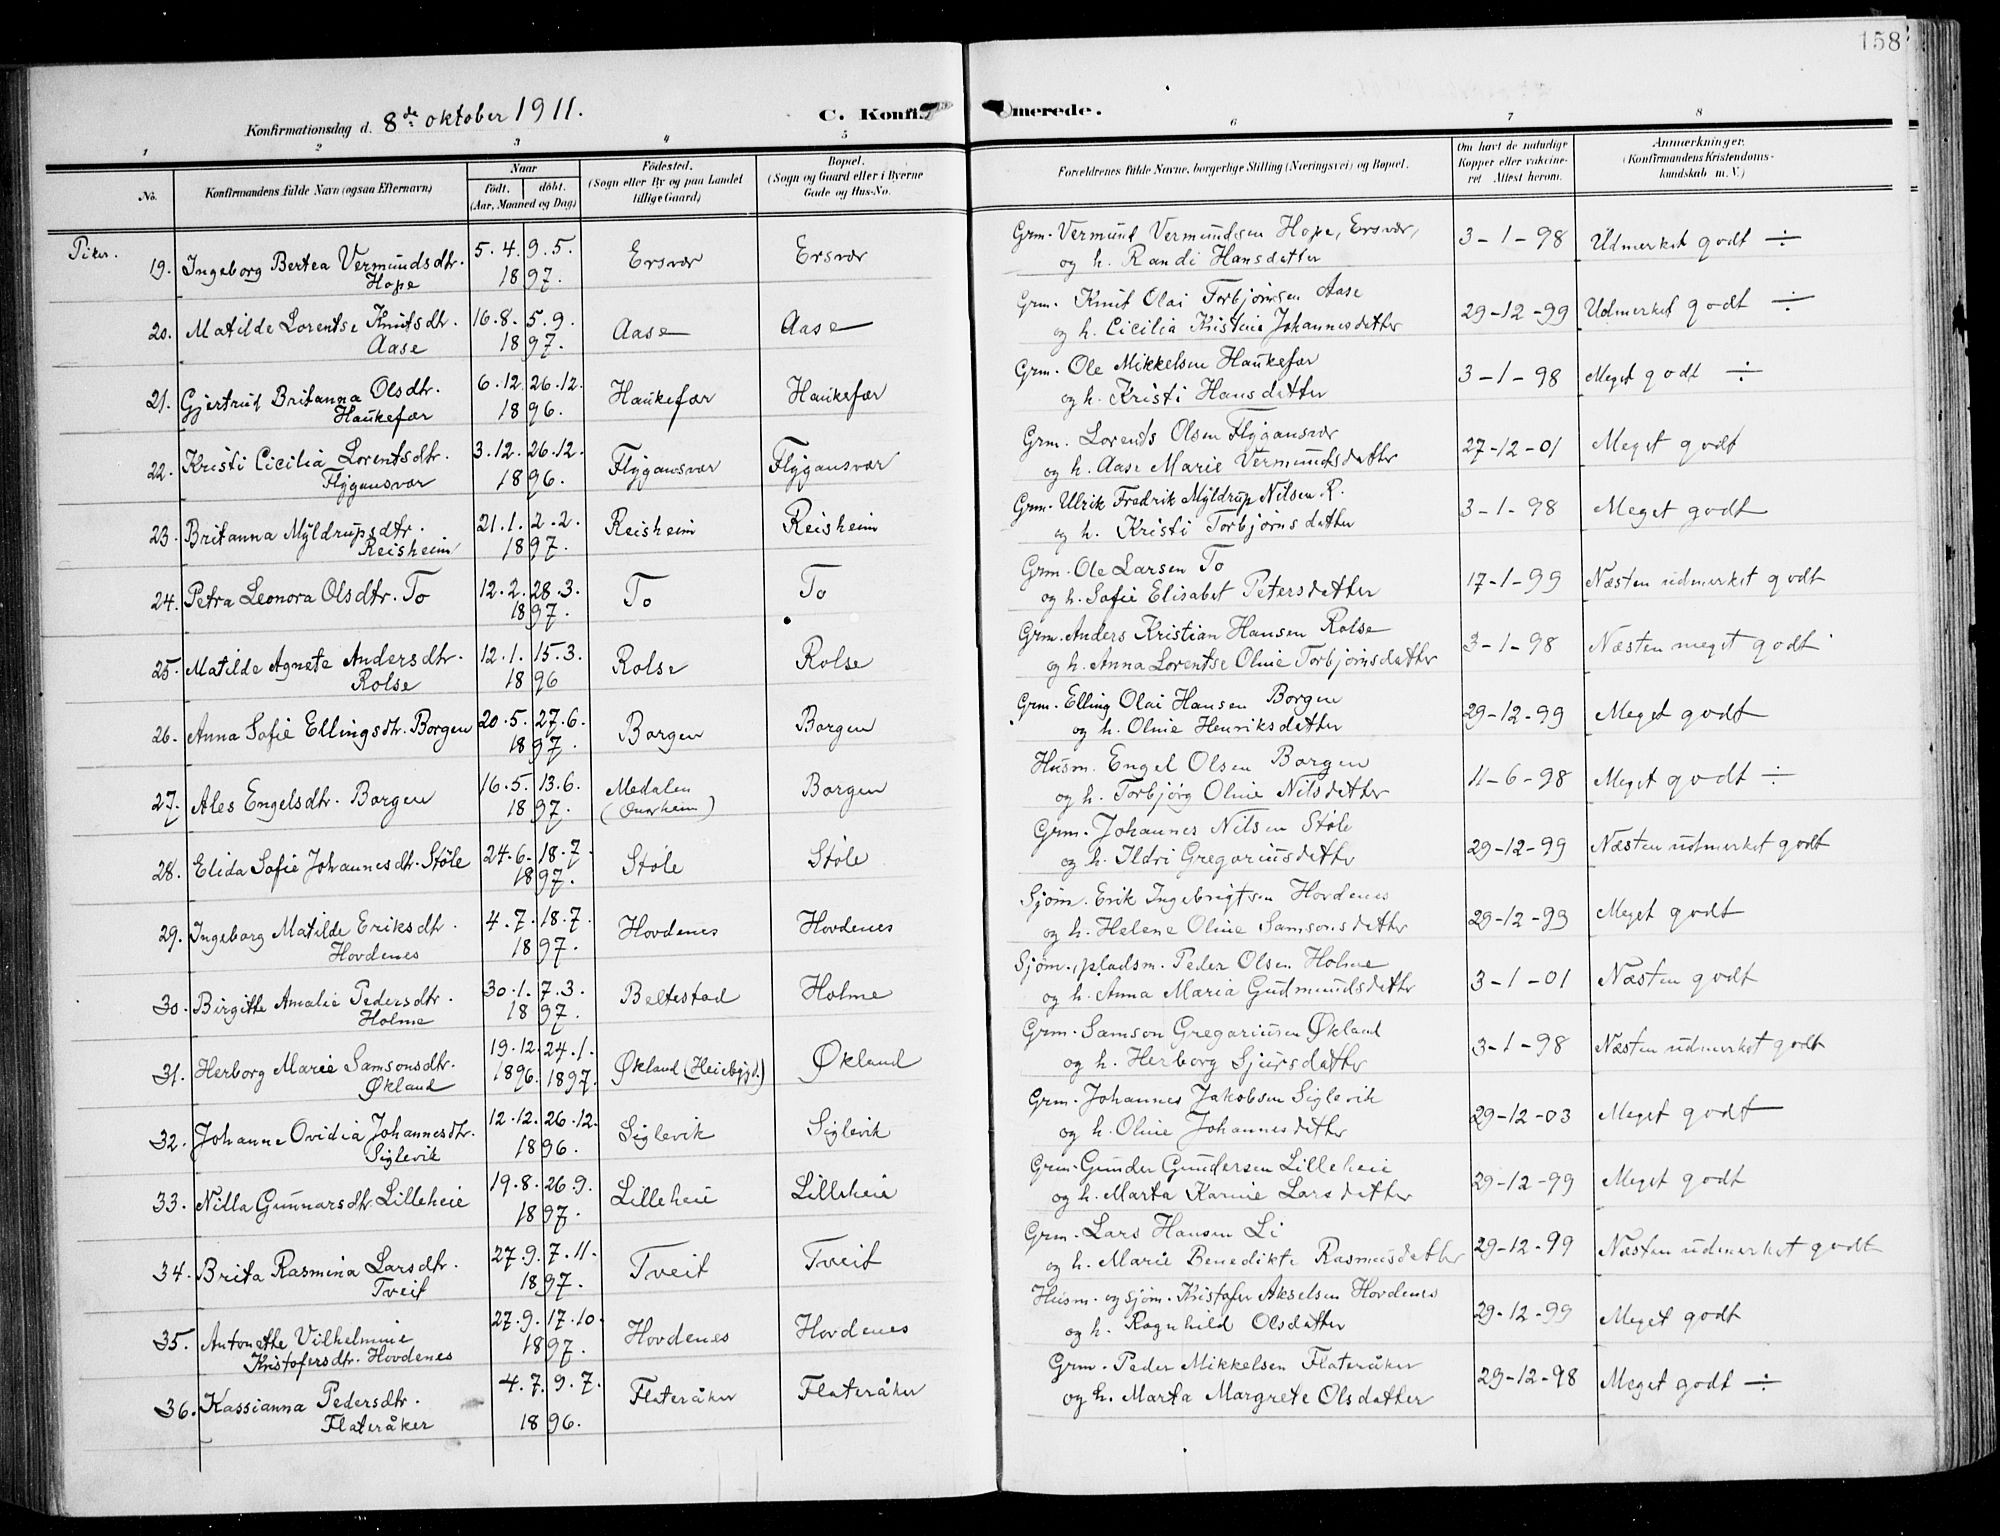 158
Konfirmationsdag d. 8de oktober 1911. C. Konfirmerede.
1 2 3 4 5 6 7 8
No. Konfirmandens fulde Navn (ogsaa Efternavn) Naar født. døbt. (Aar, Maaned og Dag) Fødested. (Sogn eller By og paa Landet tillige Gaard) Bopæl. (Sogn og Gaard eller i Byerne Gade og Hus-No. Forældrenes fulde Navne, borgerlige Stilling (Næringsvei) og Bopæl. Om havt de naturlige Kopper eller vakcineret Attest herom. Anmerkninger. (Konfirmandens Kristendomskundskab m. V.)
Piker.
19. Ingeborg Bertea Vermundsdtr. 5.4. 9.5. Ersvær Ersvær Grm. Vermund Vermundsen Hope, Ersvær, 3-1-98 Udmerket godt ÷
Hope 1897. og h. Randi Hansdatter
20. Matilde Lorentse Knutsdtr. 16.8. 5.9. Aase Aase Grm. Knut Olai Torbjørnsen Aase 29-12-99 Udmerket godt ÷
Aase 1897. og h. Cicilia Kristine Johannesdatter
21. Gjertrud Britanna Olsdtr. 6.12. 26.12. Haukefær Haukefær Grm. Ole Mikkelsen Haukefær 3-1-98 Meget godt ÷
Haukefær 1896. og h. Kristi Hansdatter
22. Kristi Cicilia Lorentsdtr. 3.12. 26.12. Flygansvær Flygansvær Grm. Lorents Olsen Flygansvær 27-12-01 Meget godt
Flygansvær 1896. og h. Aase Marie Vermundsdatter
23. Britanna Myldrupsdtr. 21.1. 2.2. Reisheim Reisheim Grm. Ulrik Fredrik Myldrup Nilsen R. 3-1-98 Meget godt
Reisheim 1897. og h. Kristi Torbjørnsdatter
24. Petra Leonora Olsdtr. To 12.2. 28.3. To To Grm. Ole Larsen To 17-1-99 Næsten udmerket godt
1897. og h. Sofie Elisabet Petersdatter
25. Matilde Agnete Andersdtr. 12.1. 15.3. Rolse Rolse Grm. Anders Kristian Hansen Rolse 3-1-98 Næsten meget godt
Rolse 1896 og h. Anna Lorentse Oline Torbjørnsdatter
26. Anna Sofie Ellingsdtr. Borgen 20.5. 27.6. Borgen Borgen Grm. Elling Olai Hansen Borgen 29-12-99 Meget godt
1897. og h. Oline Henriksdatter
27. Ales Engelsdtr. Borgen 16.5. 13.6. Medalen Borgen Husm. Engel Olsen Borgen 11-6-98 Meget godt ÷
1897. og h. Torbjørg Oline Nilsdatter
28. Elida Sofie Johannesdtr. Støle 24.6. 18.7. Støle Støle Grm. Johannes Nilsen Støle 29-12-99 Næsten udmerket godt
1897. og h. Ildri Gregoriusdatter
29. Ingeborg Matilde Eriksdtr. 4.7. 18.7. Hovdenes Hovdenes Sjøm. Erik Ingebrigtsen Hovdenes 29-12-99 Meget godt
Hovdenes 1897. og h. Helene Oline Samsonsdatter
30. Birgitte Amalie Pedersdtr. 30.1. 7.3. Beltestad Holme Sjøm., pladsm. Peder Olsen Holme 3-1-01 Næsten godt
Holme 1897. og h. Anna Maria Gudmundsdatter
31. Herborg Marie Samsonsdtr. 19.12. 24.1. Økland (Heiebygd.) Økland Grm. Samson Gregoriusen Økland 3-1-98 Næsten udmerket godt
Økland 1896. 1897. og h. Herborg Sjursdatter
32. Johanne Ovidia Johannesdtr. 12.12. 26.12. Siglevik Siglevik Grm. Johannes Jakobsen Siglevik 29-12-03 Meget godt
Siglevik 1896. og h. Oline Johannesdatter
33. Nilla Gunnarsdtr. Lilleheie 19.8. 26.9. Lilleheie Lilleheie Grm. Gunder Gundersen Lilleheie 29-12-99 Meget godt
1897. og h. Marta Karine Larsdatter
34. Brita Rasmina Larsdtr. 27.9. 7.11. Tveit Tveit Grm. Lars Hansen Li 29-12-99 Næsten udmerket godt
Tveit 1897. og h. Marie Benedikte Rasmusdatter
35. Antonette Vilhelmine 27.9. 17.10. Hovdenes Hovdenes Husm. og sjøm. Kristofer Akselsen Hovdenes 29-12-99 Meget godt
Kristofersdtr. Hovdenes 1897. og h. Ragnhild Olsdatter
36. Kassianna Pedersdtr. 4.7. 9.7. Flateråker Flateråker Grm. Peder Mikkelsen Flateråker 29-12-98 Meget godt ÷
Flateråker 1896. og h. Marta Margrete Olsdatter